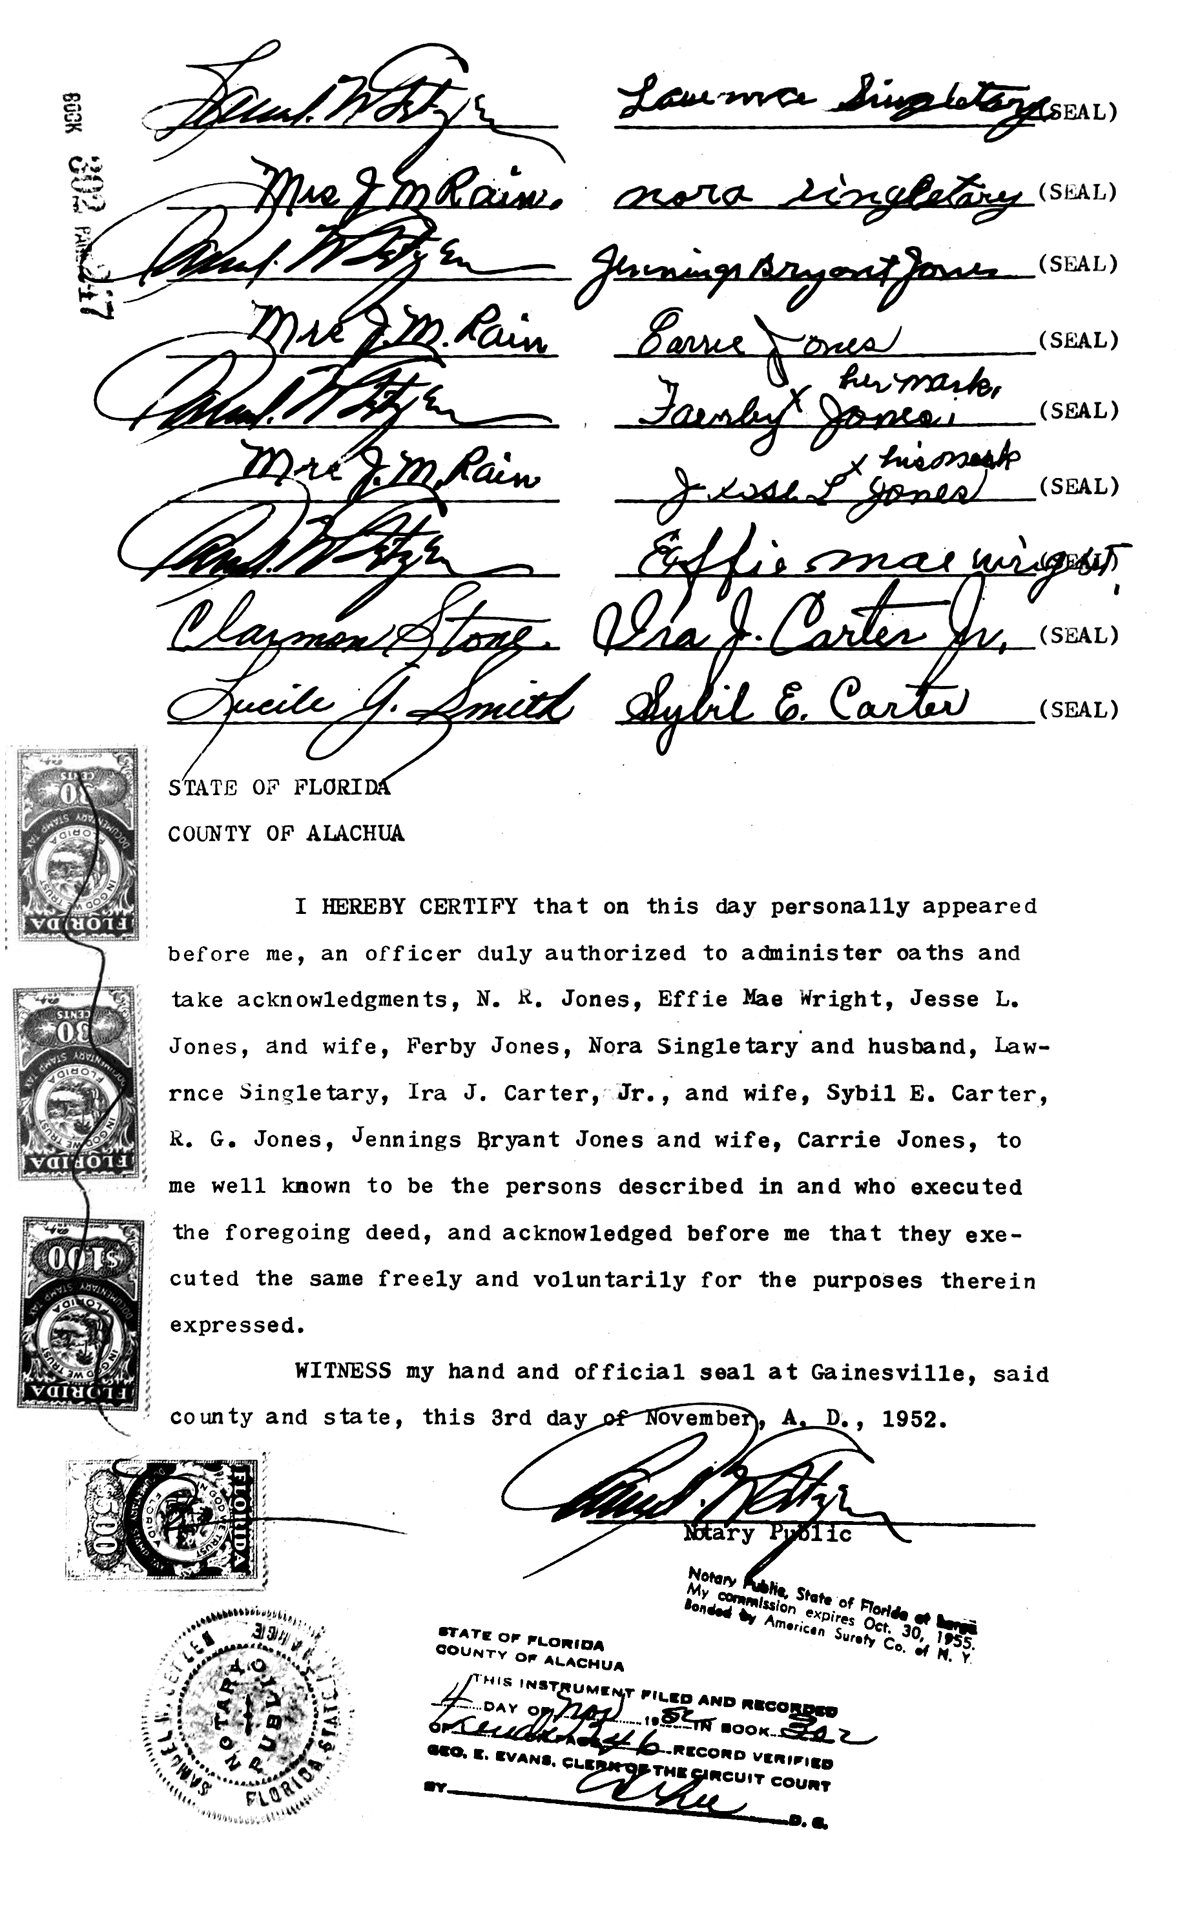 BOOK 302 PAGE 247
Lawrence Singletary (SEAL)
Mrs J M Rain. Nora Singletary (SEAL)
Jennings Bryant Jones (SEAL)
Mrs J. M. Rain Carrie Jones (SEAL)
her mark,
x Jones. (SEAL)
Mrs J. M. Rain x his mark
L Jones (SEAL)
Effie Mae Wright, (SEAL)
Clarmon Stone. Ira J. Carter Jr. (SEAL)
Lucile G. Smith Sybil E. Carter (SEAL)
STATE OF FLORIDA
COUNTY OF ALACHUA
I HEREBY CERTIFY that on this day personally appeared
before me, an officer duly authorized to administer oaths and
take acknowledgments, N. R. Jones, Effie Mae Wright, Jesse L.
Jones, and wife, Ferby Jones, Nora Singletary and husband, Law-
rnce Singletary, Ira J. Carter, Jr., and wife, Sybil E. Carter,
R. G. Jones, Jennings Bryant Jones and wife, Carrie Jones, to
me well known to be the persons described in and who executed
the foregoing deed, and acknowledged before me that they exe-
cuted the same freely and voluntarily for the purposes therein
expressed.
WITNESS my hand and official seal at Gainesville, said
county and state, this 3rd day of November, A. D., 1952.
Notary Public
Notary Public, State of Florida at Large
My commission expires Oct. 30, 1955.
Bonded by American Surety Co. of N. Y.
30 CENTS
DOCUMENTARY STAMP TAX
FLORIDA
IN GOD WE TRUST
FLORIDA
30 CENTS
DOCUMENTARY STAMP TAX
FLORIDA
IN GOD WE TRUST
FLORIDA
$1.00
DOCUMENTARY STAMP TAX
FLORIDA
IN GOD WE TRUST
FLORIDA
FLORIDA
NOTARY PUBLIC
FLORIDA STATE AT LARGE
STATE OF FLORIDA
COUNTY OF ALACHUA
THIS INSTRUMENT FILED AND RECORDED
4 DAY OF Nov 1952 IN BOOK 302
OF PAGE 246 RECORD VERIFIED
GEO. E. EVANS, CLERK OF THE CIRCUIT COURT
BY D. C.